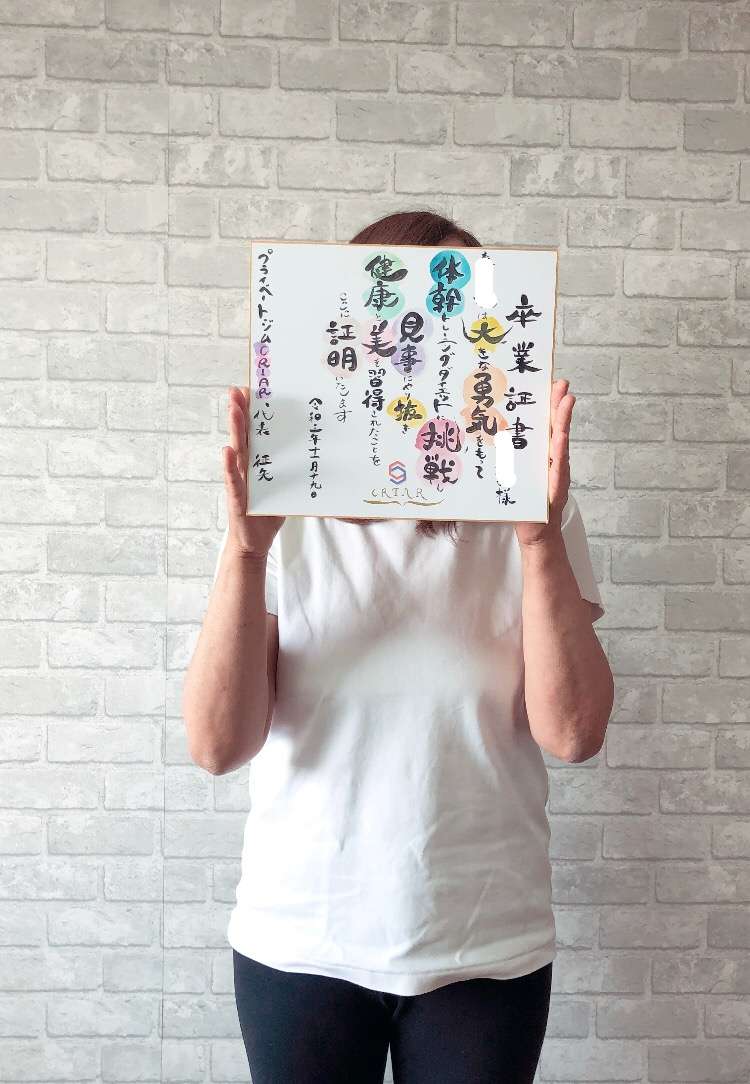 卒業証書
様
は大きな勇気をもって
体幹トレーニングダイエットに挑戦し
見事にやり抜き
健康と美を習得されたことを
ここに証明いたします
令和二年十一月十九日
プライベートジムCRIAR・代表
CRIAR